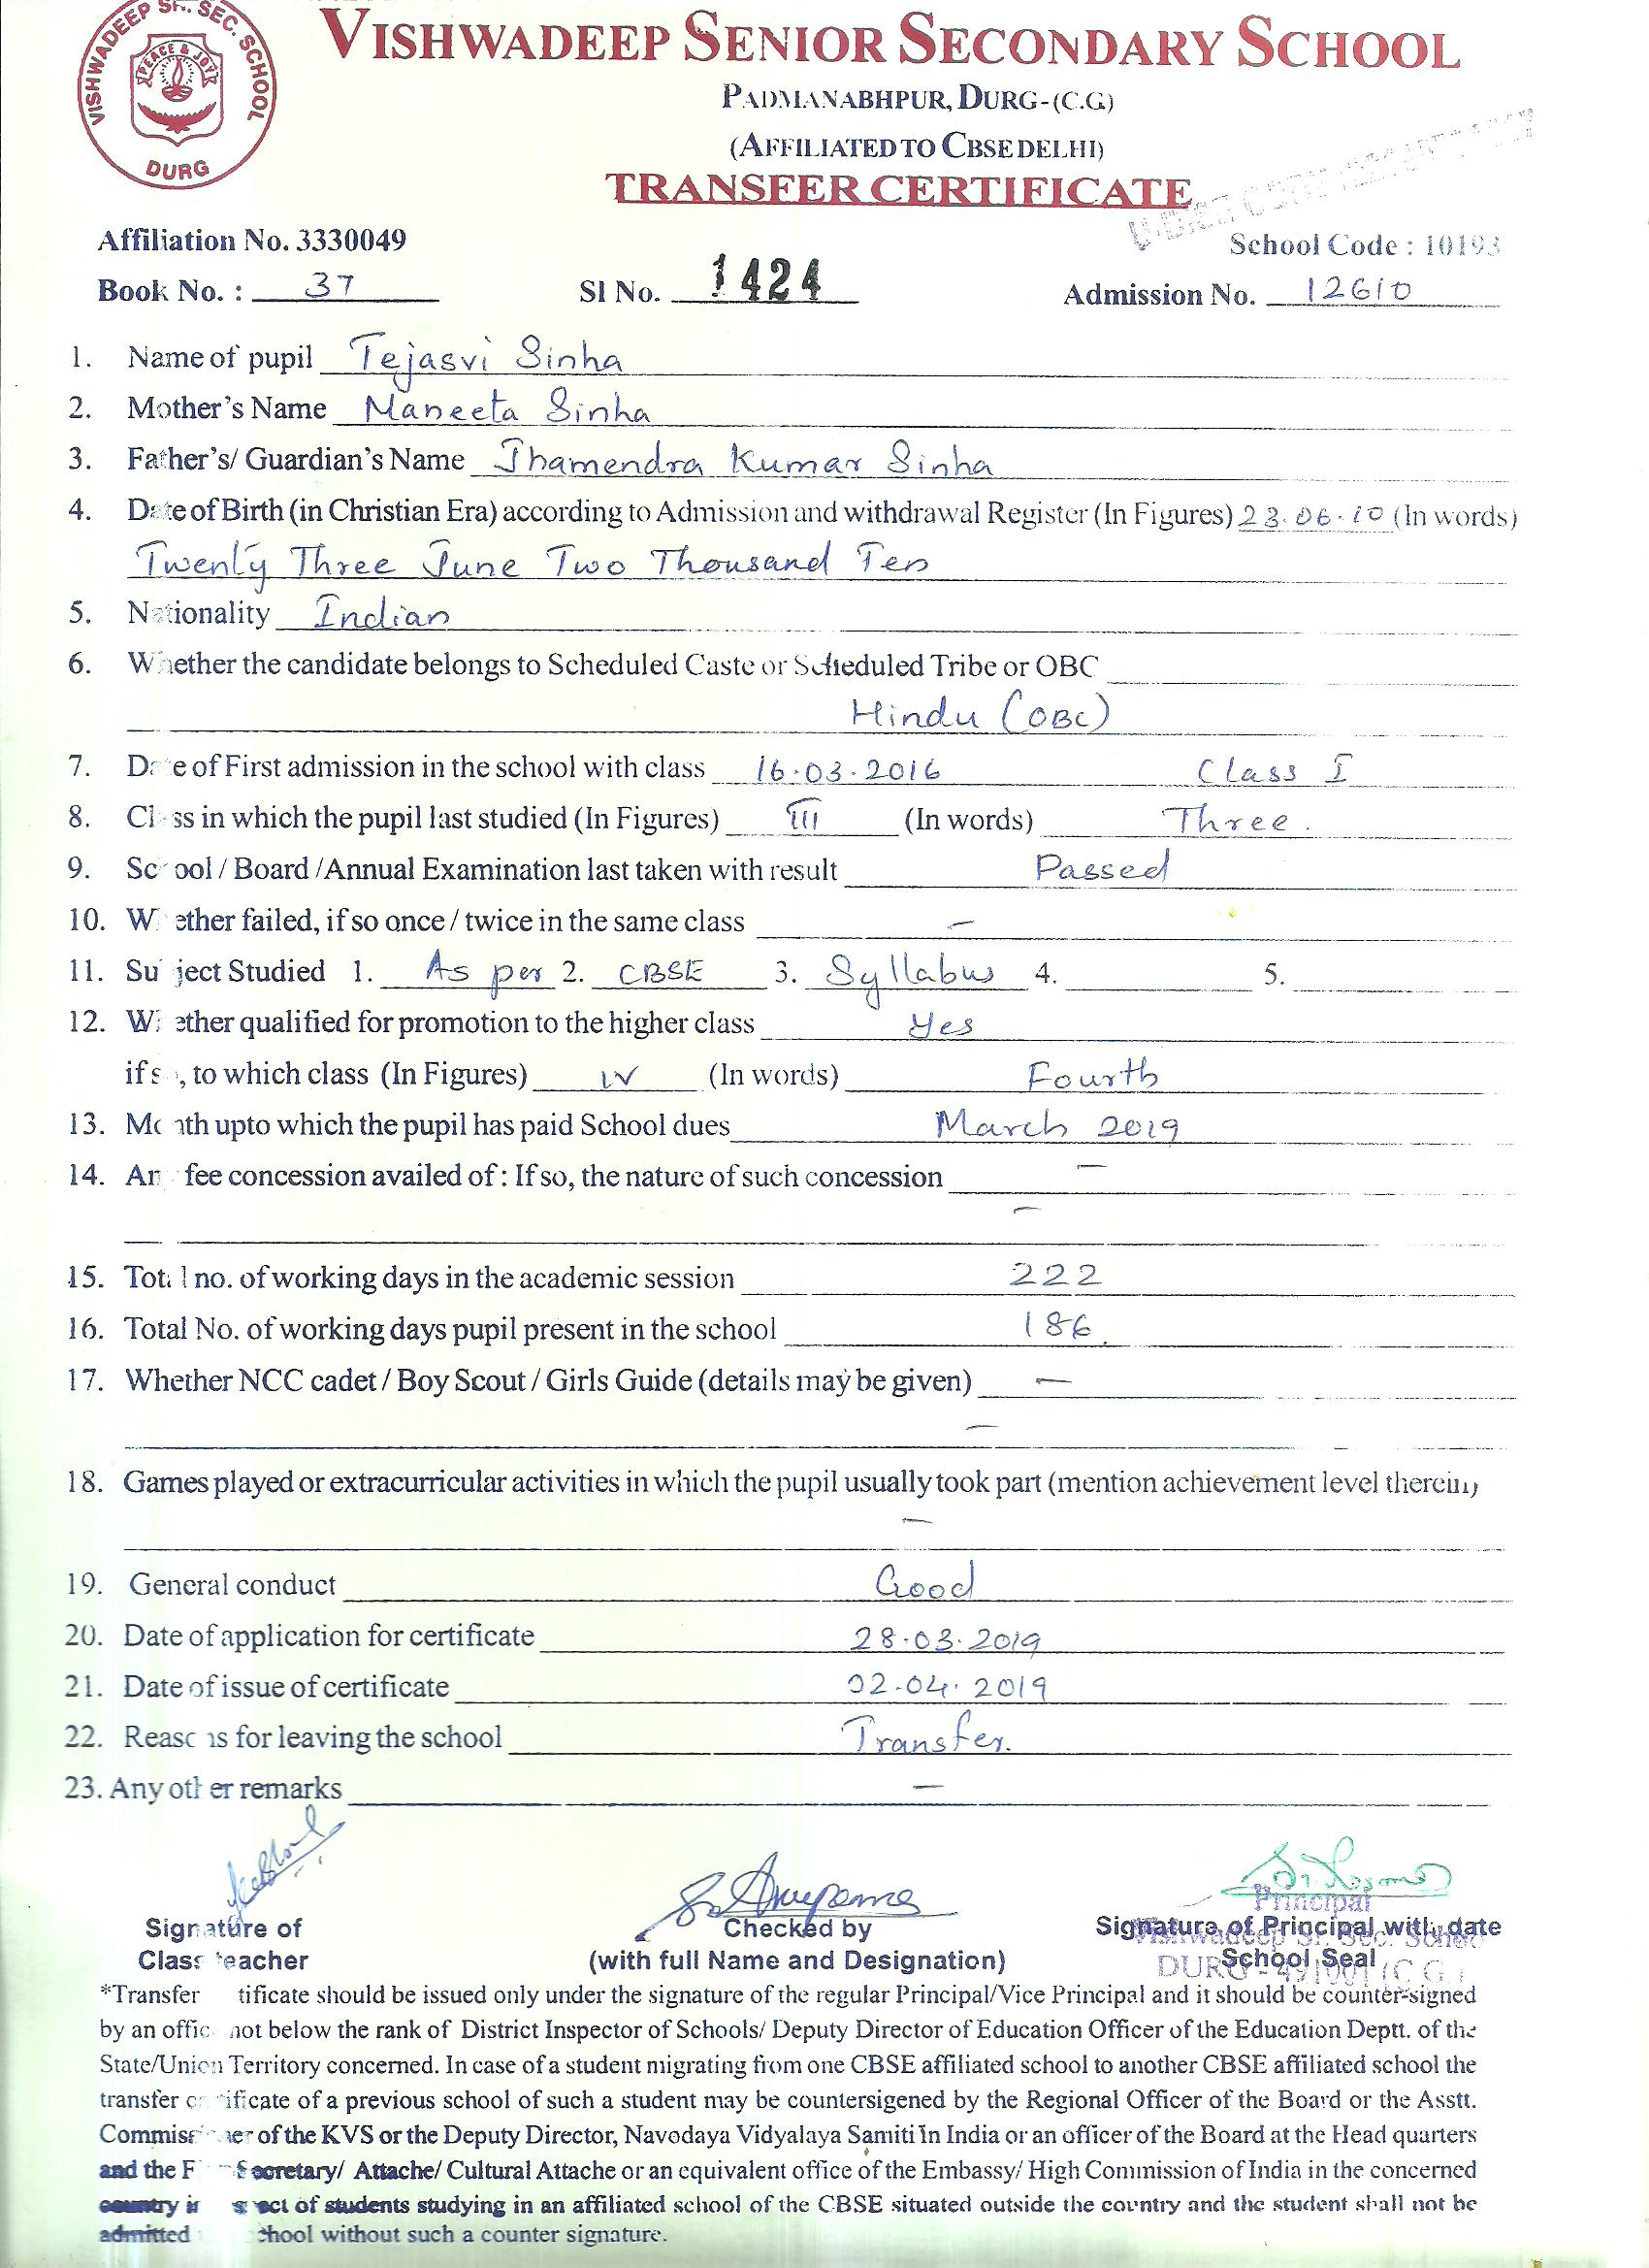 VISHWADEEP SR. SEC. SCHOOL
PEACE & JOY
DURG
VISHWADEEP SENIOR SECONDARY SCHOOL
PADMANABHPUR, DURG-(C.G)
(AFFILIATED TO CBSE DELHI)
TRANSFER CERTIFICATE
Affiliation No. 3330049 School Code : 10193
Book No. : 37 Sl No. 1424 Admission No. 12610
1. Name of pupil Tejasvi Sinha
2. Mother's Name Maneeta Sinha
3. Father's/ Guardian's Name Jhamendra Kumar Sinha
4. Date of Birth (in Christian Era) according to Admission and withdrawal Register (In Figures) 23.06.10 (In words)
Twenty Three June Two Thousand Ten
5. Nationality Indian
6. Whether the candidate belongs to Scheduled Caste or Scheduled Tribe or OBC
Hindu (OBC)
7. Date of First admission in the school with class 16.03.2016 Class I
8. Class in which the pupil last studied (In Figures) III (In words) Three.
9. School / Board /Annual Examination last taken with result Passed
10. Whether failed, if so once / twice in the same class —
11. Subject Studied 1. As per 2. CBSE 3. Syllabus 4. 5.
12. Whether qualified for promotion to the higher class Yes
if so, to which class (In Figures) IV (In words) Fourth
13. Month upto which the pupil has paid School dues March 2019
14. Any fee concession availed of : If so, the nature of such concession —
—
15. Total no. of working days in the academic session 222
16. Total No. of working days pupil present in the school 186.
17. Whether NCC cadet / Boy Scout / Girls Guide (details may be given) —
—
18. Games played or extracurricular activities in which the pupil usually took part (mention achievement level therein)
—
19. General conduct Good
20. Date of application for certificate 28.03.2019
21. Date of issue of certificate 02.04.2019
22. Reasons for leaving the school Transfer.
23. Any other remarks —
Principal
Signature of Checked by Signature of Principal with date
Vishwadeep Sr. Sec. School
Class teacher (with full Name and Designation) School Seal
DURG - 491001 (C.G.)
*Transfer tificate should be issued only under the signature of the regular Principal/Vice Principal and it should be counter-signed
by an offic not below the rank of District Inspector of Schools/ Deputy Director of Education Officer of the Education Deptt. of the
State/Union Territory concerned. In case of a student migrating from one CBSE affiliated school to another CBSE affiliated school the
transfer certificate of a previous school of such a student may be countersigened by the Regional Officer of the Board or the Asstt.
Commissioner of the KVS or the Deputy Director, Navodaya Vidyalaya Samiti in India or an officer of the Board at the Head quarters
and the F Secretary/ Attache/ Cultural Attache or an equivalent office of the Embassy/ High Commission of India in the concerned
country in respect of students studying in an affiliated school of the CBSE situated outside the country and the student shall not be
admitted school without such a counter signature.